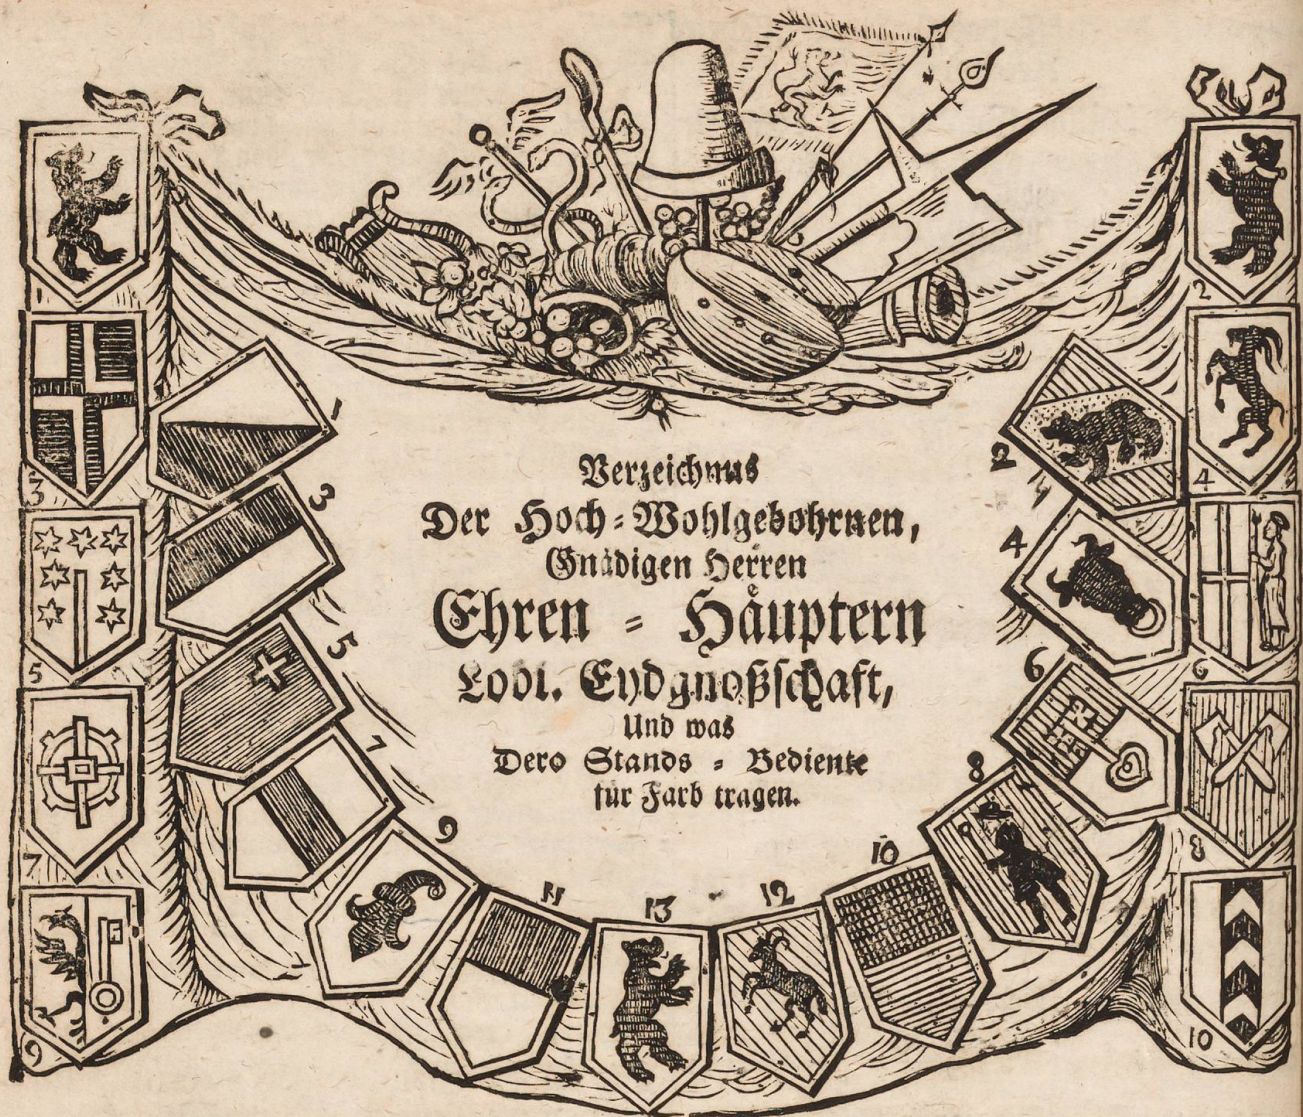 Verzeichnus
Der Hoch-Wohlgebohrnen,
Gnädigen Herren
Ehren-Häuptern
Lobl. Eydgnoßschaft,
Und was
Dero Stands-Bediente
für Farb tragen.
1
2
3
4
5
6
7
8
9
10
11
12
13
1
2
3
4
5
6
7
8
9
10